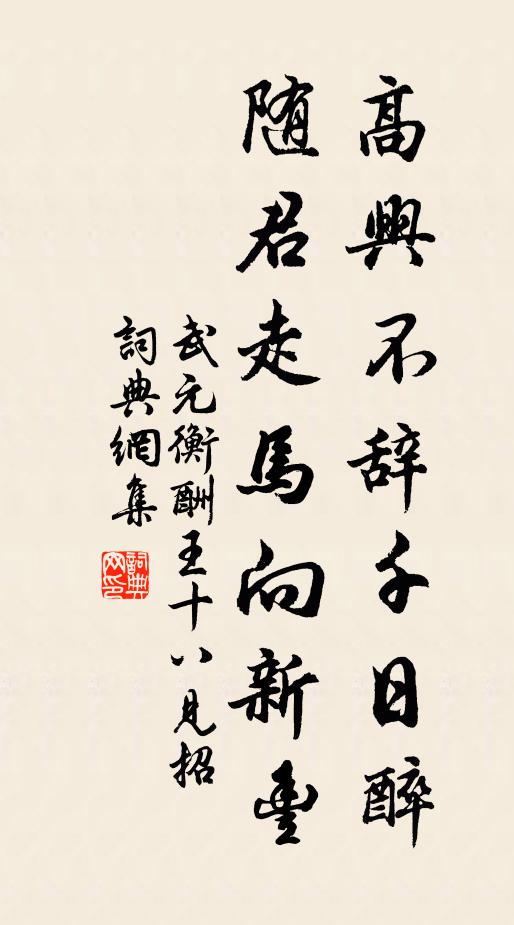 高興不辞千日醉
随君走馬向新豊
武元衡酬王十八見招
詞典網集
詞典网印